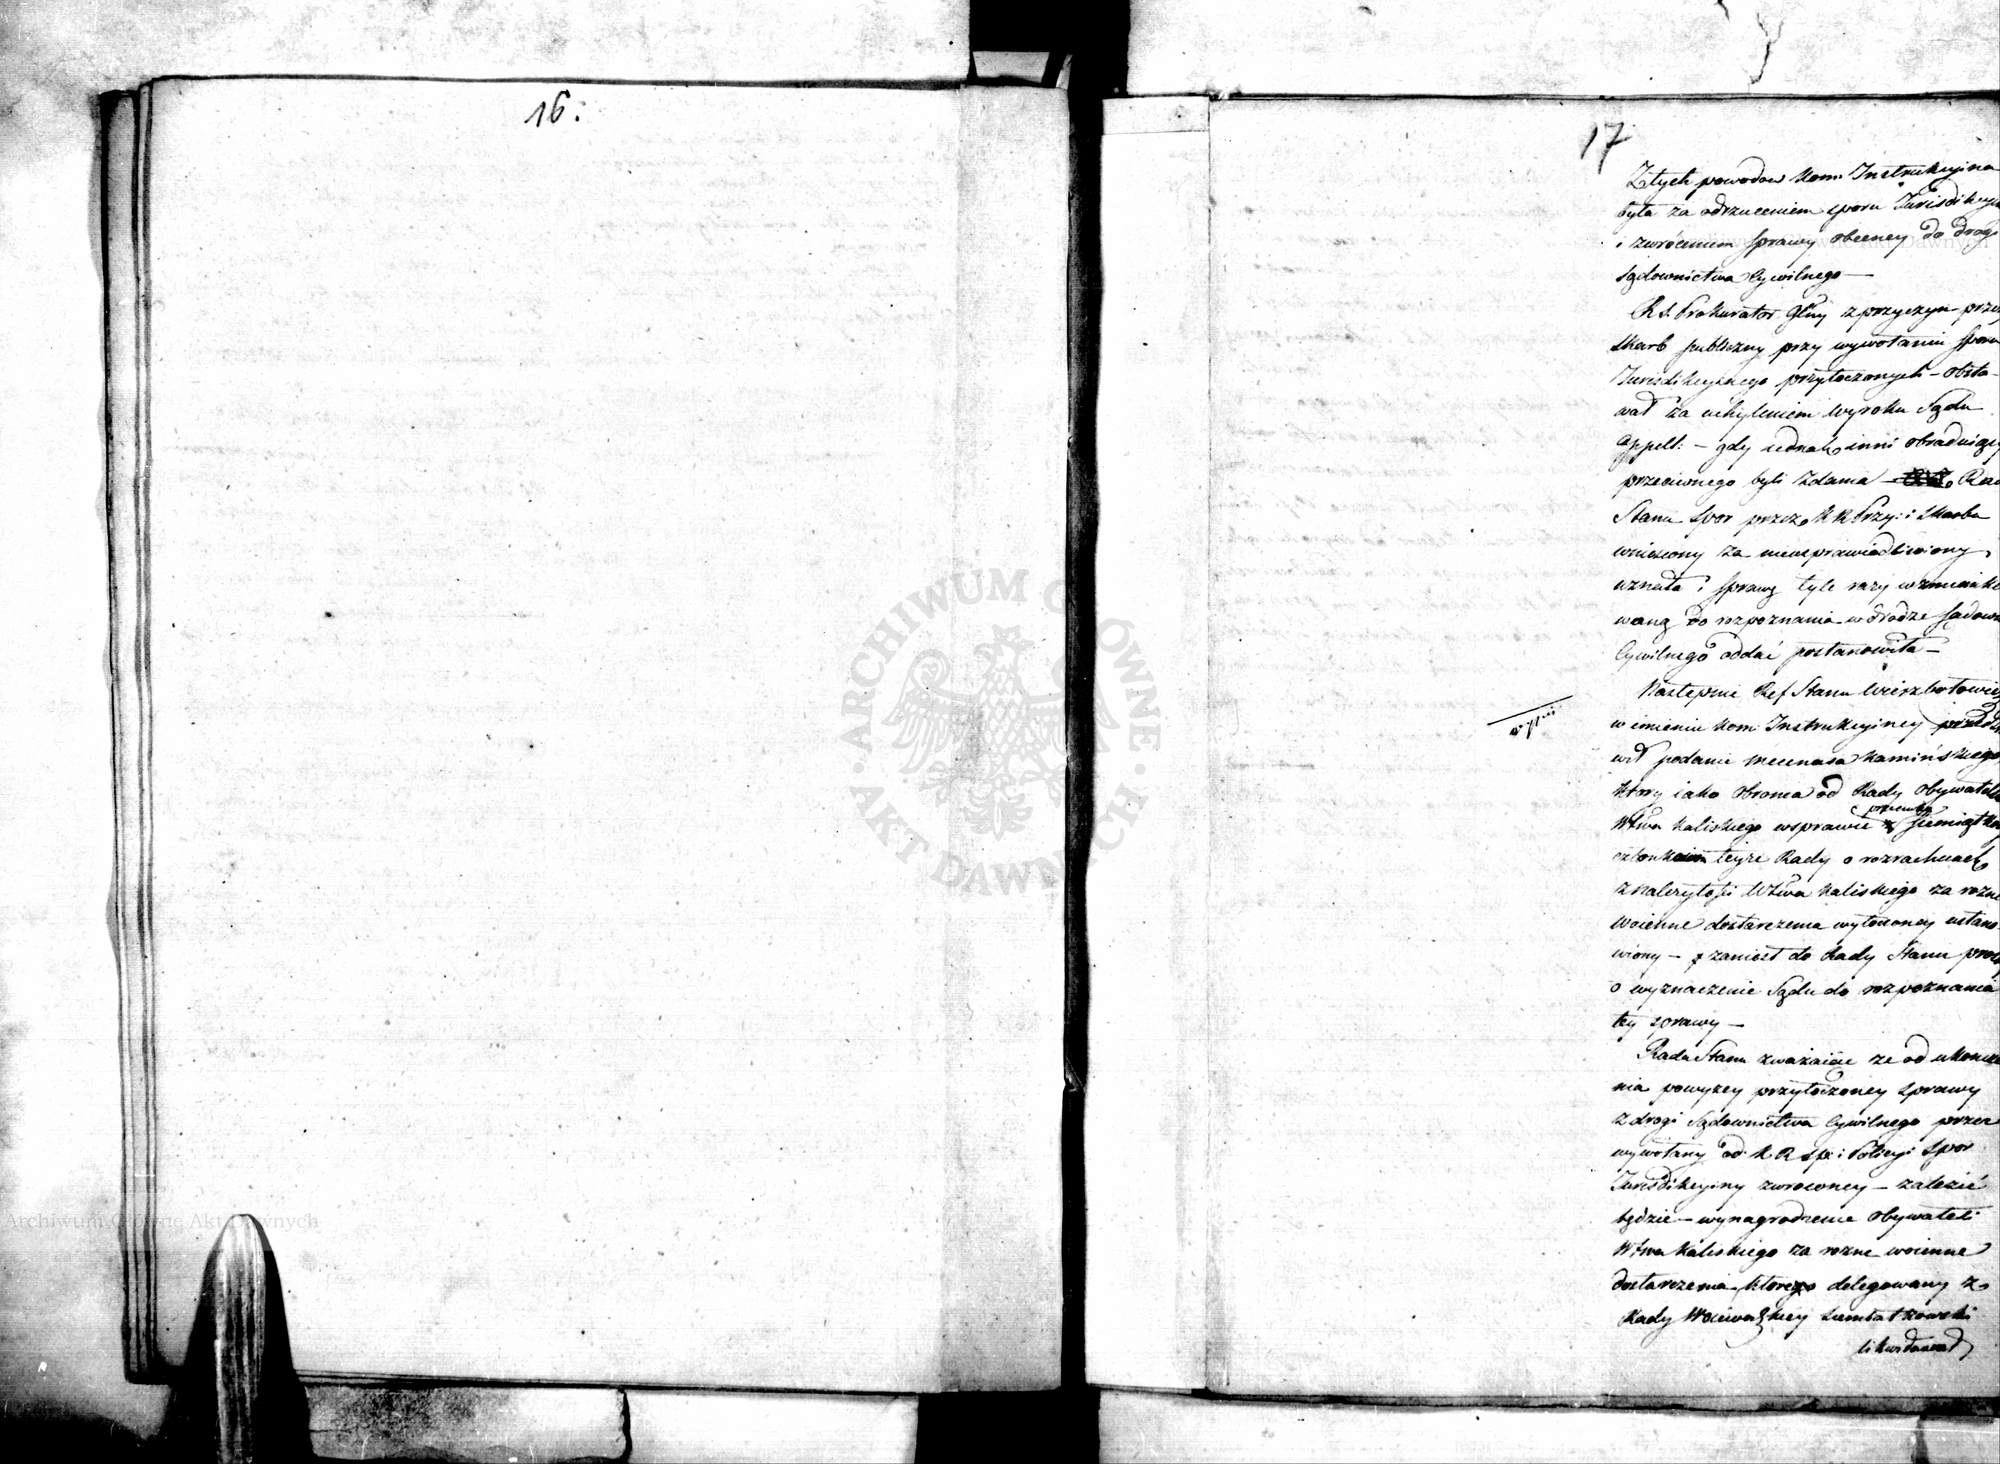 16:
17
Z tych powodow Kom: Instrukcyina
była za odrzuceniem sporu Jurisdikcyin
i zwróceniem sprawy obecney do drogi
Sądownictwa Cywilnego —
R S. Prokurator Głny z przyczyn przez
skarb publiczny przy wywołaniu sporu
Jurisdikcyinego przytoczonych – obsta-
wał za uchyleniem wyroku Sądu
Appell: – gdy iednak inni obraduiący
przeciwnego byli zdania – Rad
Stanu spor przez K R Przy: i Skarbu
wniesiony za nieusprawiedliwiony
uznała i sprawę tyle razy wzmianko
waną do rozpoznania w drodze sądown
Cywilnego oddać postanowiła –
Następnie Ref Stanu Wierzbołowicz
w imieniu Kom: Instrukcyiney przedsta
wił podanie Mecenasa Kamińskiego
który iako obronca od Rady Obywatel
Wtwa Kaliskiego w sprawie przeciwko Siemiątkow
członkowi teyże Rady o rozrachunek
z należytości Wtwa Kaliskiego za rozne
woienne dostarczenia wytoczoney ustano-
wiony – zaniosł do Rady Stanu prosb
o wyznaczenie Sądu do rozpoznania
tey sprawy –
Rada Stanu zważaiąc ze od ukoncze
nia powyzey przytoczoney sprawy
z drogi Sądownictwa Cywilnego przez
wywołany od K R Sp: i Policyi Spor
Jurisdikcyiny zwroconey – zależić
będzie – wynagrodzenie Obywateli
Wtwa Kaliskiego za rozne woienne
dostarczenia, ktorego delegowany z
Rady Woiewodzkiey Siemiatkowski
likwidował
ARCHIWUM GŁÓWNE · AKT DAWNYCH ·
Archiwum Główne Akt Dawnych
Archiwum Główne Akt Dawnych